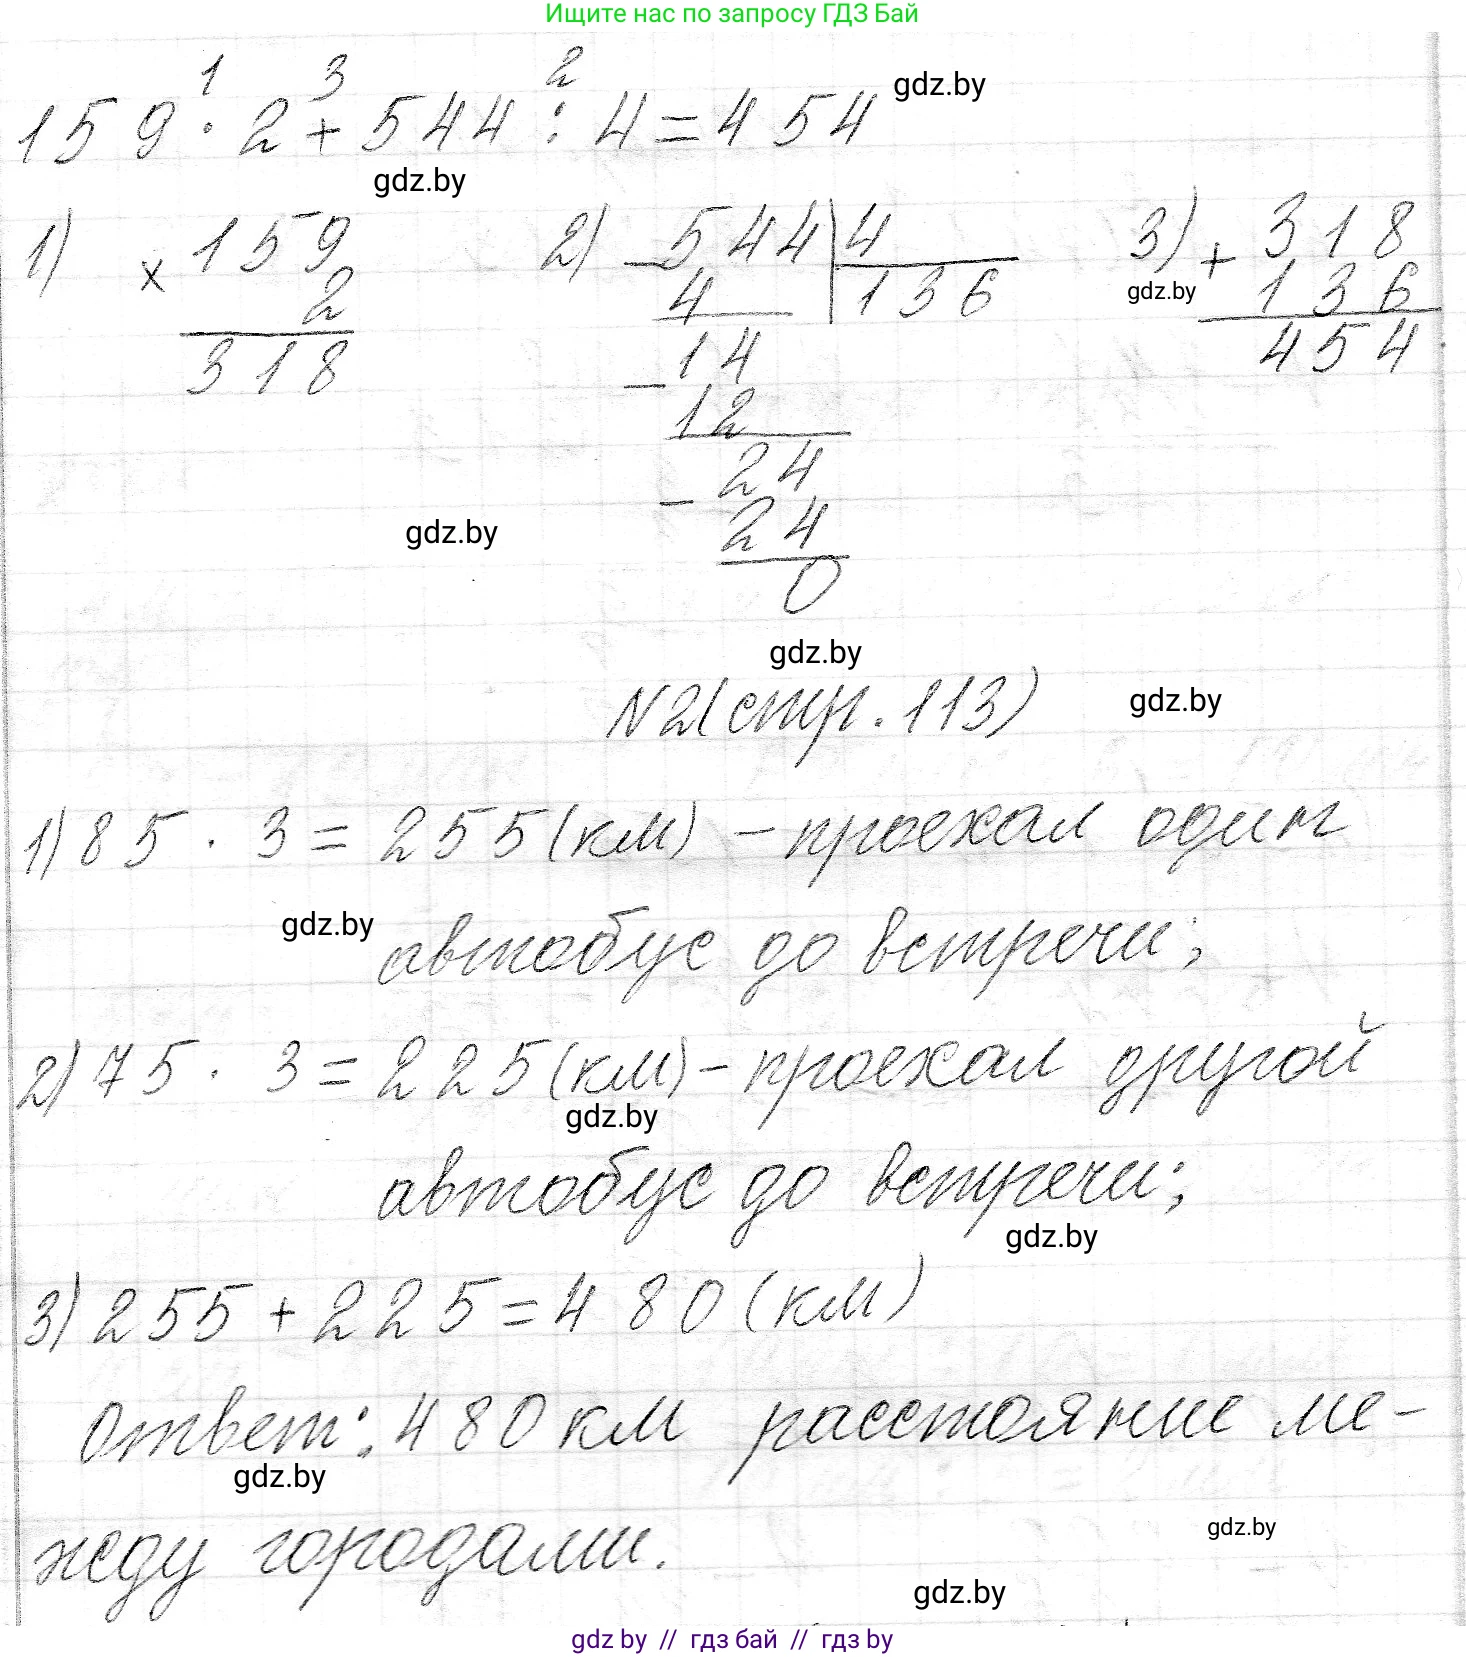 Ищите нас по запросу ГДЗ Бай
1 3 2
159 · 2 + 544 : 4 = 454 gdz.by
gdz.by
1) × 159
2
318
2) − 544 | 4
4 136
− 14
12
− 24
24
0
3) + 318
gdz.by 136
454
gdz.by
gdz.by
N2(стр. 113) gdz.by
1) 85 · 3 = 255 (км) – проехал один
gdz.by автобус до встречи;
2) 75 · 3 = 225 (км) – проехал другой
gdz.by
автобус до встречи;
gdz.by
3) 255 + 225 = 480 (км)
Ответ: 480 км расстояние ме-
gdz.by
жду городами.
gdz.by
gdz.by
gdz by // гдз бай // гдз by